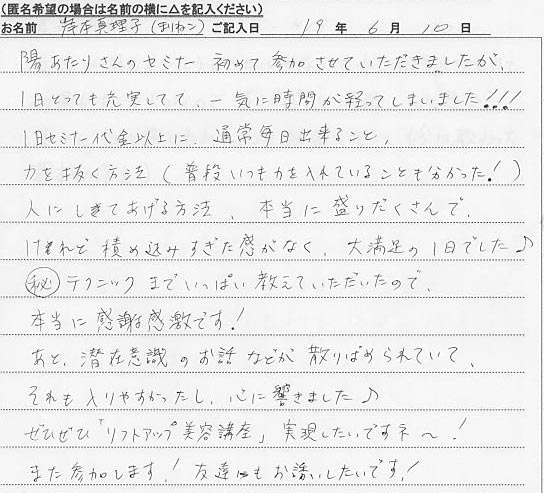 (匿名希望の場合は名前の横に△を記入ください)
お名前 岸本真理子(まりねこ) ご記入日 19 年 6 月 10 日
陽あたりさんのセミナー 初めて参加させていただきましたが、
1日とっても充実してて、一気に時間が経ってしまいました!!!
1日セミナー代金以上に、通常毎日出来ること、
力を抜く方法(普段いつも力を入れていることも分かった!)
人にしてあげる方法、本当に盛りだくさんで、
けれど積め込みすぎた感がなく、大満足の1日でした♪
㊙テクニックまでいっぱい教えていただいたので、
本当に感謝感激です!
あと、潜在意識のお話などが散りばめられていて、
それも入りやすかったし、心に響きました♪
ぜひぜひ「リフトアップ美容講座」実現したいですネ〜!
また参加します!友達にもお誘いしたいです!